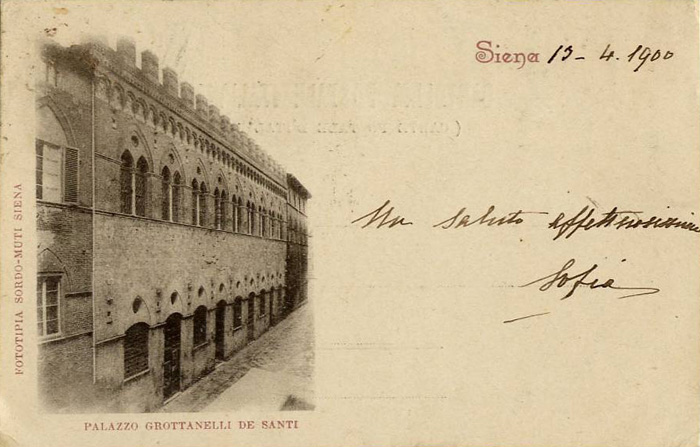 Siena 13-4.1900
Un saluto affettuosissimo
Sofia
FOTOTIPIA SORDO-MUTI SIENA
PALAZZO GROTTANELLI DE SANTI